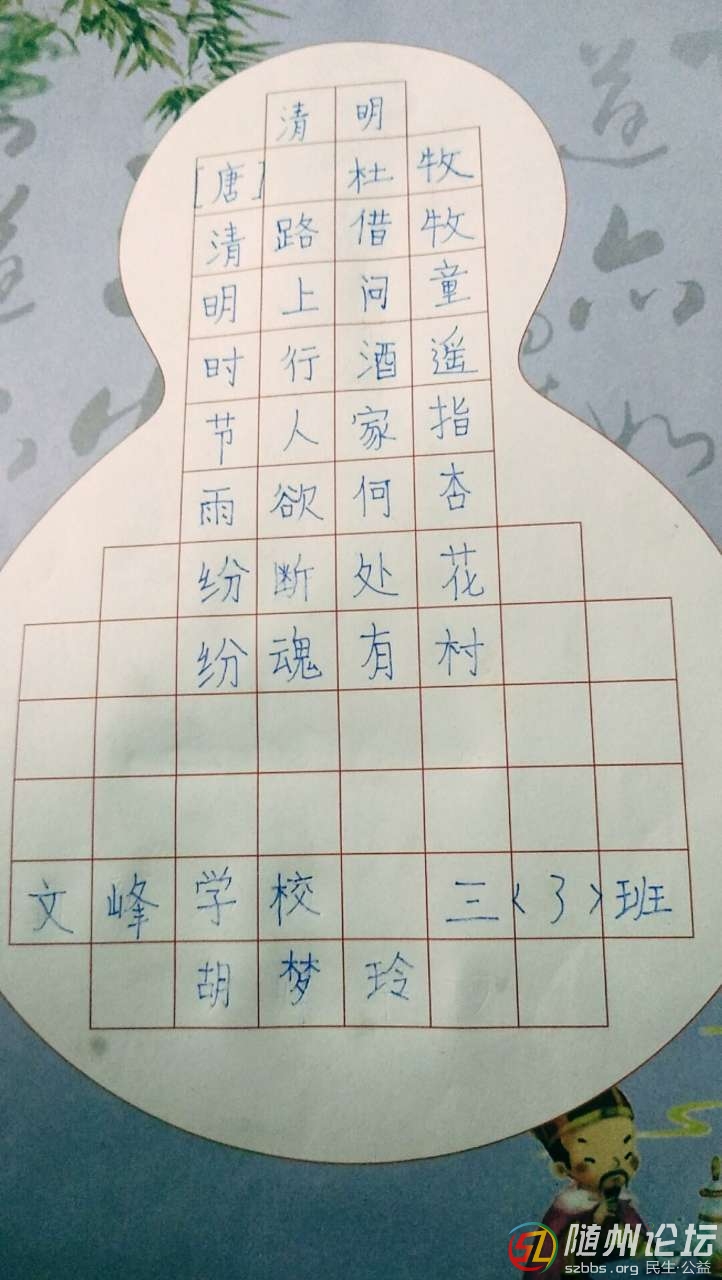 清明
[唐] 杜牧
清明时节雨纷纷
路上行人欲断魂
借问酒家何处有
牧童遥指杏花村
文峰学校 三<3>班
胡梦玲
随州论坛
szbbs.org 民生·公益